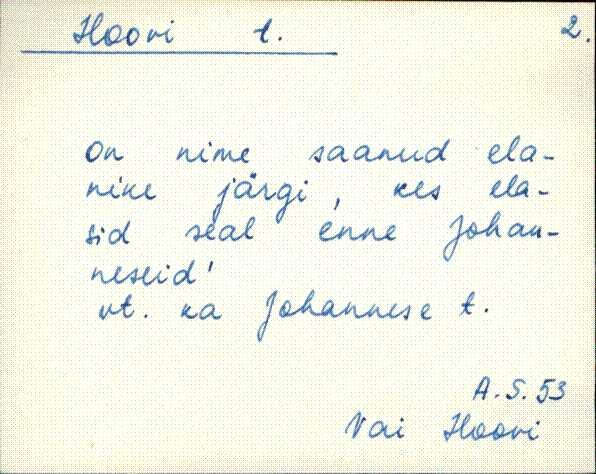 Hoovi t. 2.
On nime saanud ela-
nike järgi, kes ela-
sid seal enne Johan-
neseid'
vt. ka Johannese t.
A.S. 53
Vai Hoovi